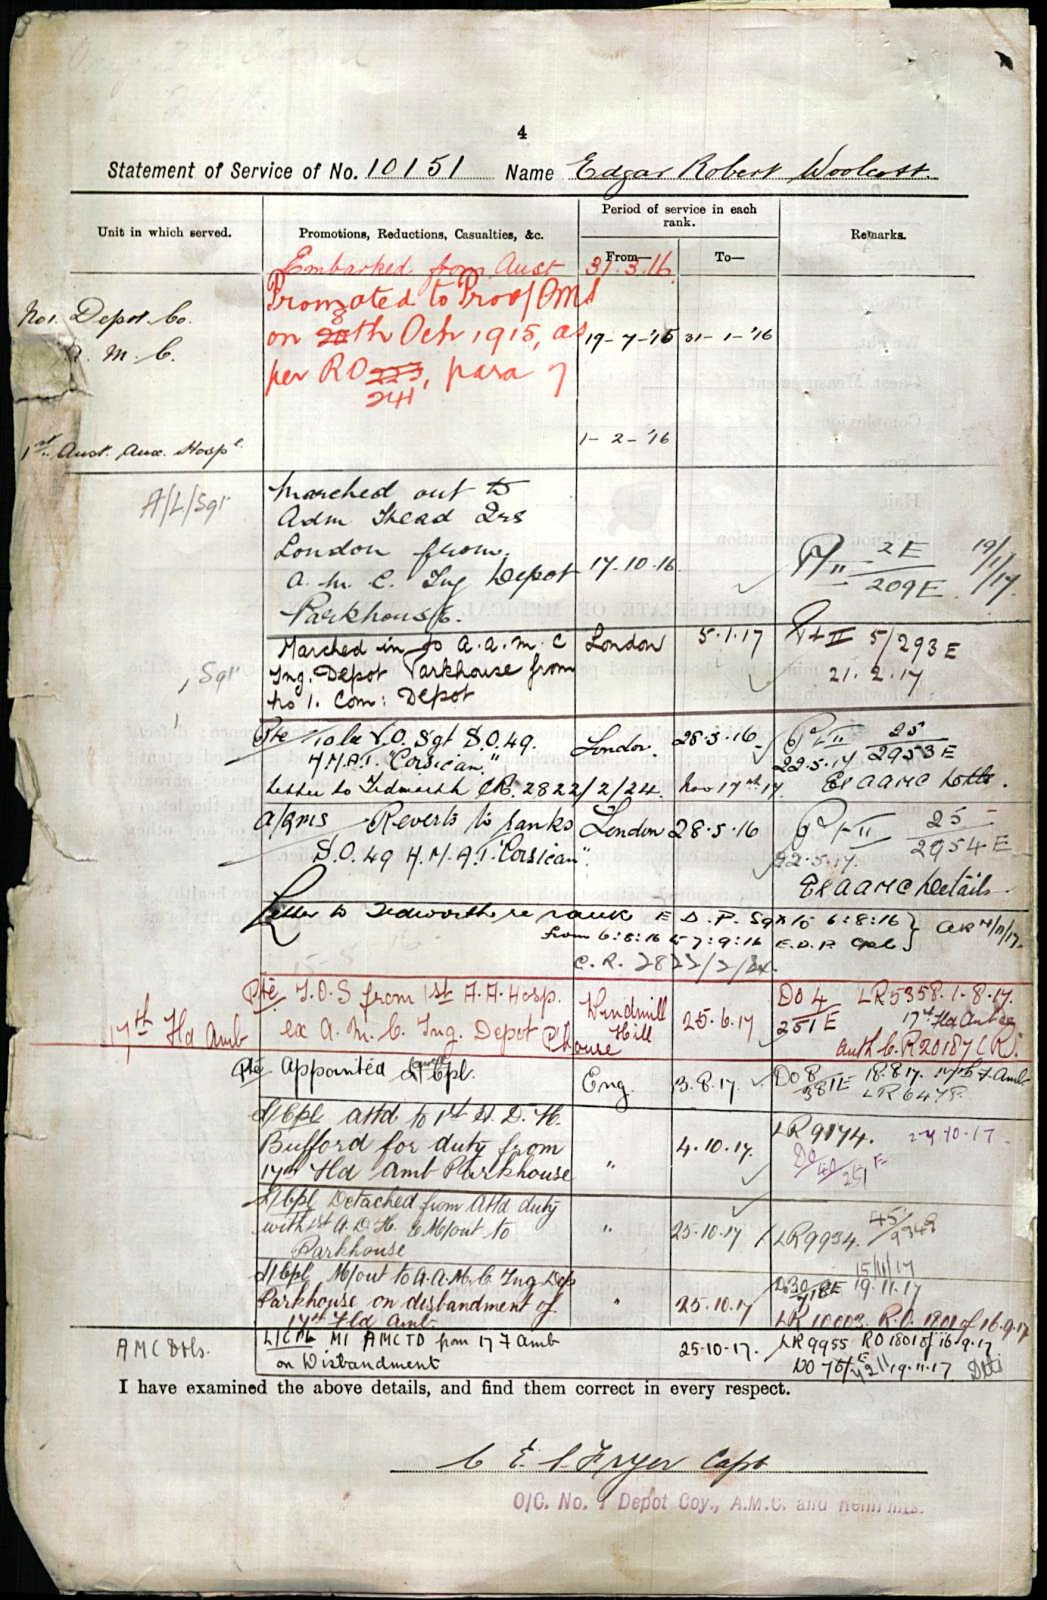 4
Statement of Service of No. 10151 Name Edgar Robert Woolcott.
Unit in which served.
Promotions, Reductions, Casualties, &c.
Period of service in each
rank.
From—
To—
Remarks.
Embarked from Aust 31.3.16
No 1. Depot Co.
A. M. C.
Promoted to Prov/QMS
on 20th Oct 1915, as
per RO 223, para 7
241
19-7-'15 31-1-'16
1st Aust. Aux. Hospl
1-2-'16
A/L/Sgt
Marched out to
Adm Head Qrs
London from
A. M. C. Tng Depot
Parkhouse.
17.10.16
Pt II 2E
209E
19/1/17.
Sgt
Marched in to A. A. M. C
Tng. Depot Parkhouse from
No 1. Com: Depot
London 5.1.17
Pt II 5/293E
21.2.17
Pte To be V.O. Sgt S.O. 49.
H.M.A.T. "Corsican."
London. 28.3.16
Pt II 25
2953E
22.5.17
Letter to Tidworth CR. 2822/2/24. Nov 17th 17.
El AAMC Details.
A/QMS Reverts to ranks
S.O. 49 H.M.A.T. "Corsican".
London 28.5.16
Pt II 25
2954E
22.5.17.
El AAMC Details
Letter to Tedworth re rank E.D.P. Sgt to 6:8:16
from 6:8:16 to 7:9:16 E.D.P. Cpl
C.R. 2822/2/24.
17th Fld Amb
Pte T.O.S from 1st A.A. Hosp.
ex A.M.C. Tng. Depot P'house
Windmill
Hill
25.6.17
DO 4
251E
LR5358. 1.8.17.
17th Fld Amb
Auth C.R 20187 (R).
Pte Appointed L/Cpl.
Eng. 3.8.17.
DO 8
381E
18.8.17. 17th F. Amb
LR 6478.
L/Cpl attd to 1st A. D. H.
Bulford for duty from
17th Fld Amb Parkhouse
" 4.10.17.
LR9174. 24.10.17.
DO
L/Cpl Detached from attd duty
with 1st A.D.H. & M/out to
Parkhouse
" 25.10.17
LR9934.
15/11/17
L/Cpl M/out to A.A.M.C Tng Dep
Parkhouse on disbandment of
17th Fld Amb
" 25.10.17
19.11.17
LR 10003. R.O. 1801 of 16.9.17
AMC Dtls.
L/CPL MI AMCTD from 17 F Amb
on Disbandment
25-10-17.
LR9955 RO 1801 of 16-9-17
19.11.17
I have examined the above details, and find them correct in every respect.
C E S Fryer Capt
O/C. No. 1 Depot Coy., A.M.C. and Reinf'mts.